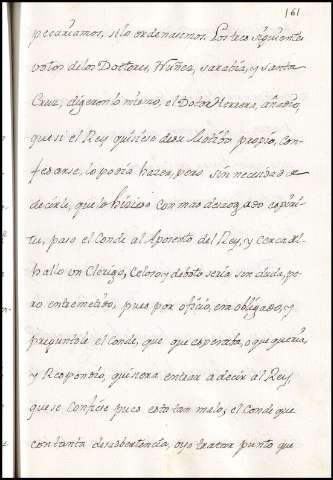 161
pecariamos, si lo ordenasemos. Los tres siguientes
votos de los Doctores, Nuñez, sarabia, y Santa
Cruz, digeron lo mismo, el Dotor Herrera, añadio,
que si el Rey quisiese de su Motibo propio, con-
fesarse, lo podia hazer, pero sin necesidad de
decirle, que lo hiziese con mas descogado espiri-
tu, paso el Conde al Aposento del Rey, y cerca del
hallo vn Clerigo, Celoso y deboto seria sin duda, pe-
ro entremetido, pues por oficio, era obligado, y
preguntole el Conde, que que esperaba, o que queria,
y Respondio, quisiera entrar a decir al Rey,
que se Confiese pues esta tan malo; el Conde que
con tanta desaobertencia, oyo tratar punto que